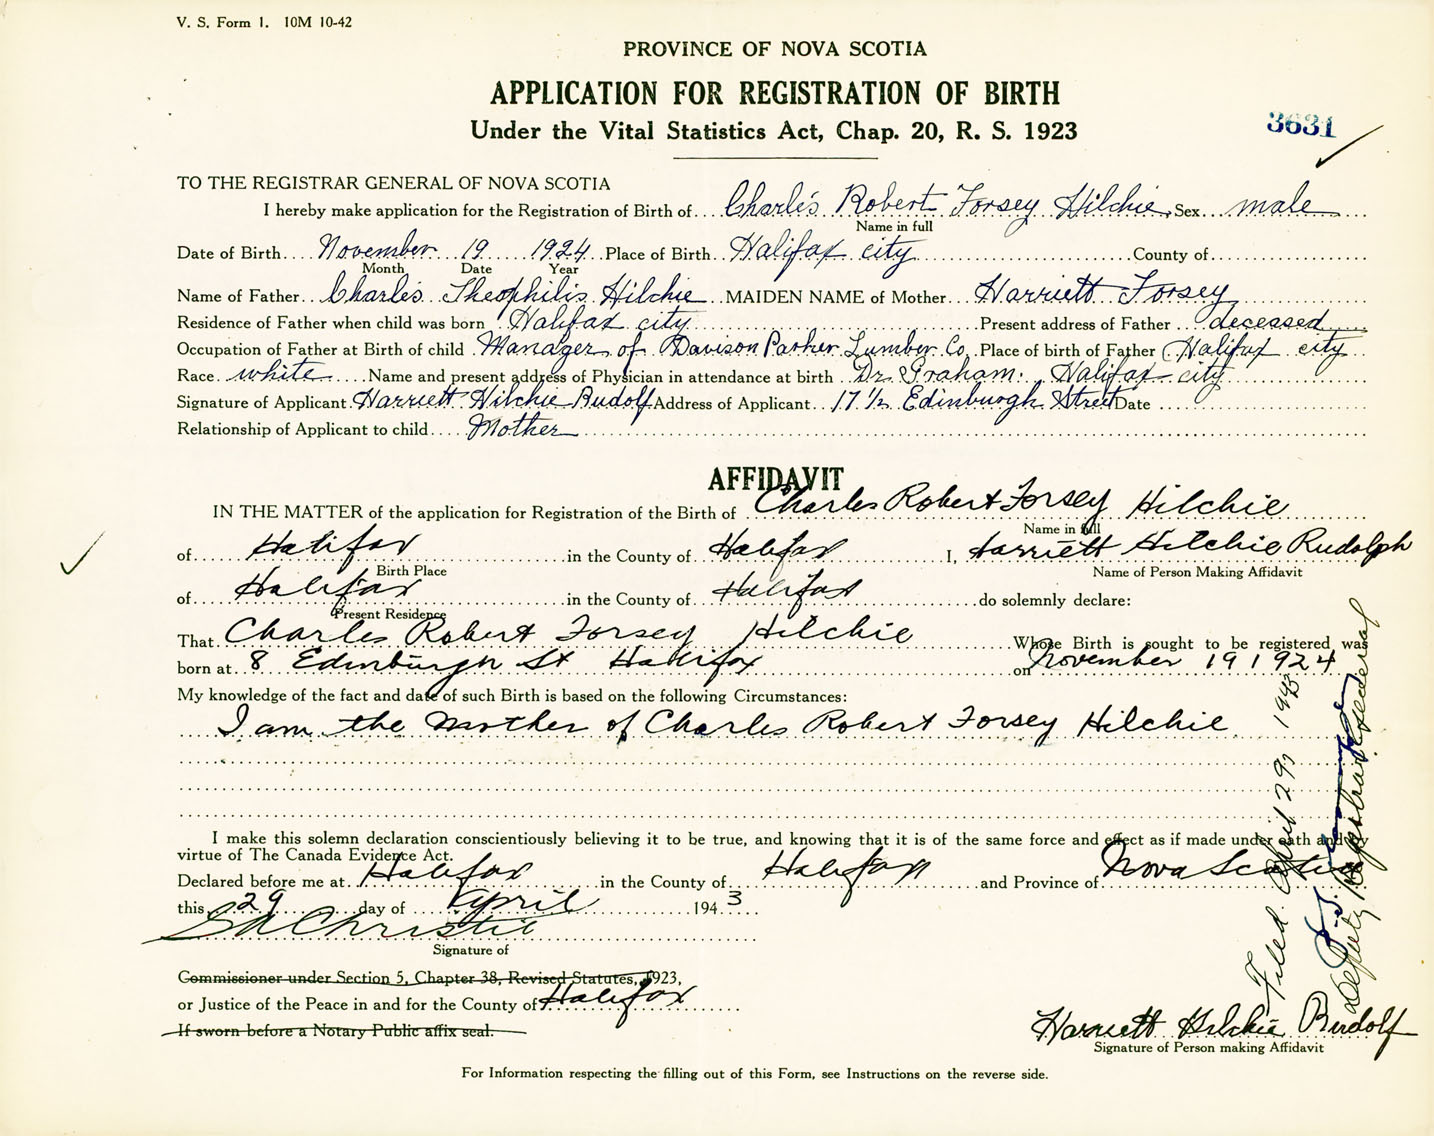 V. S. Form 1. 10M 10-42
PROVINCE OF NOVA SCOTIA
APPLICATION FOR REGISTRATION OF BIRTH
Under the Vital Statistics Act, Chap. 20, R. S. 1923
3631
TO THE REGISTRAR GENERAL OF NOVA SCOTIA
I hereby make application for the Registration of Birth of Charles Robert Forsey Hilchie Sex male
Name in full
Date of Birth November 19 1924 Place of Birth Halifax city County of
Month Date Year
Name of Father Charles Theophilis Hilchie MAIDEN NAME of Mother Harriett Forsey
Residence of Father when child was born Halifax city Present address of Father deceased
Occupation of Father at Birth of child Manager of Davison Parker Lumber Co. Place of birth of Father Halifax city
Race white Name and present address of Physician in attendance at birth Dr. Graham. Halifax city
Signature of Applicant Harriett Hilchie Rudolf Address of Applicant 17 1/2 Edinburgh Street Date
Relationship of Applicant to child Mother
AFFIDAVIT
IN THE MATTER of the application for Registration of the Birth of Charles Robert Forsey Hilchie
Name in full
of Halifax in the County of Halifax I, Harriett Hilchie Rudolph
Birth Place Name of Person Making Affidavit
of Halifax in the County of Halifax do solemnly declare:
Present Residence
That Charles Robert Forsey Hilchie Whose Birth is sought to be registered was
born at 8 Edinburgh St Halifax on November 19 1924
My knowledge of the fact and date of such Birth is based on the following Circumstances:
I am the Mother of Charles Robert Forsey Hilchie
I make this solemn declaration conscientiously believing it to be true, and knowing that it is of the same force and effect as if made under oath and by
virtue of The Canada Evidence Act.
Declared before me at Halifax in the County of Halifax and Province of Nova Scotia
this 29 day of April 1943
Christie
Signature of
Commissioner under Section 5, Chapter 38, Revised Statutes, 1923,
or Justice of the Peace in and for the County of Halifax
If sworn before a Notary Public affix seal.
Harriett Hilchie Rudolf
Signature of Person making Affidavit
For Information respecting the filling out of this Form, see Instructions on the reverse side.
Filed. April 29, 1943
Deputy Registrar General